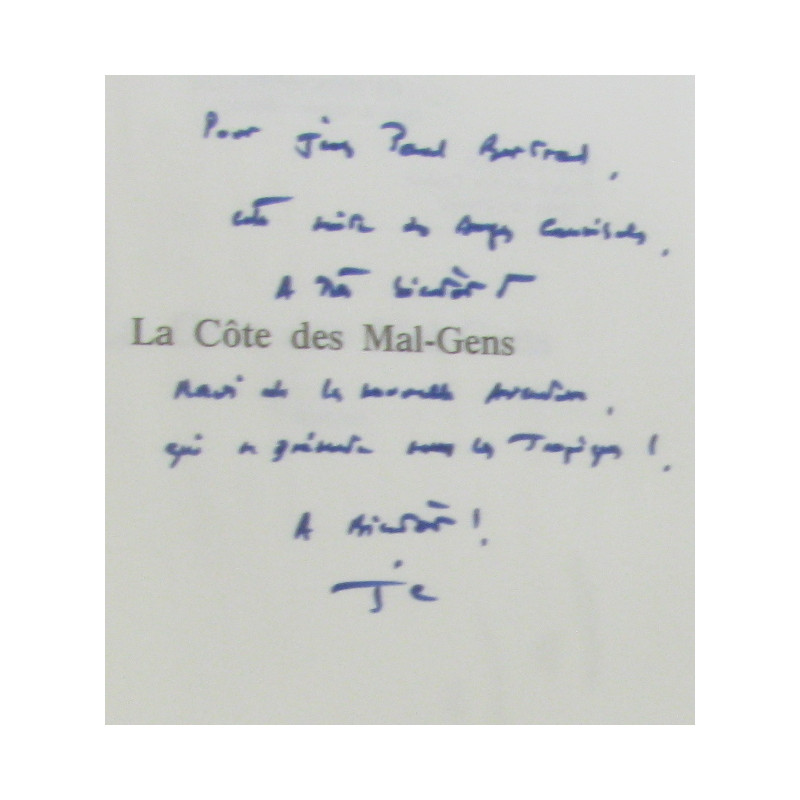 Pour Jean Paul Bertrand,
cette suite des Anges
A très bientôt
La Côte des Mal-Gens
Ravi de la nouvelle aventure,
qui se présente sous les Tropiques !
A bientôt !
JC